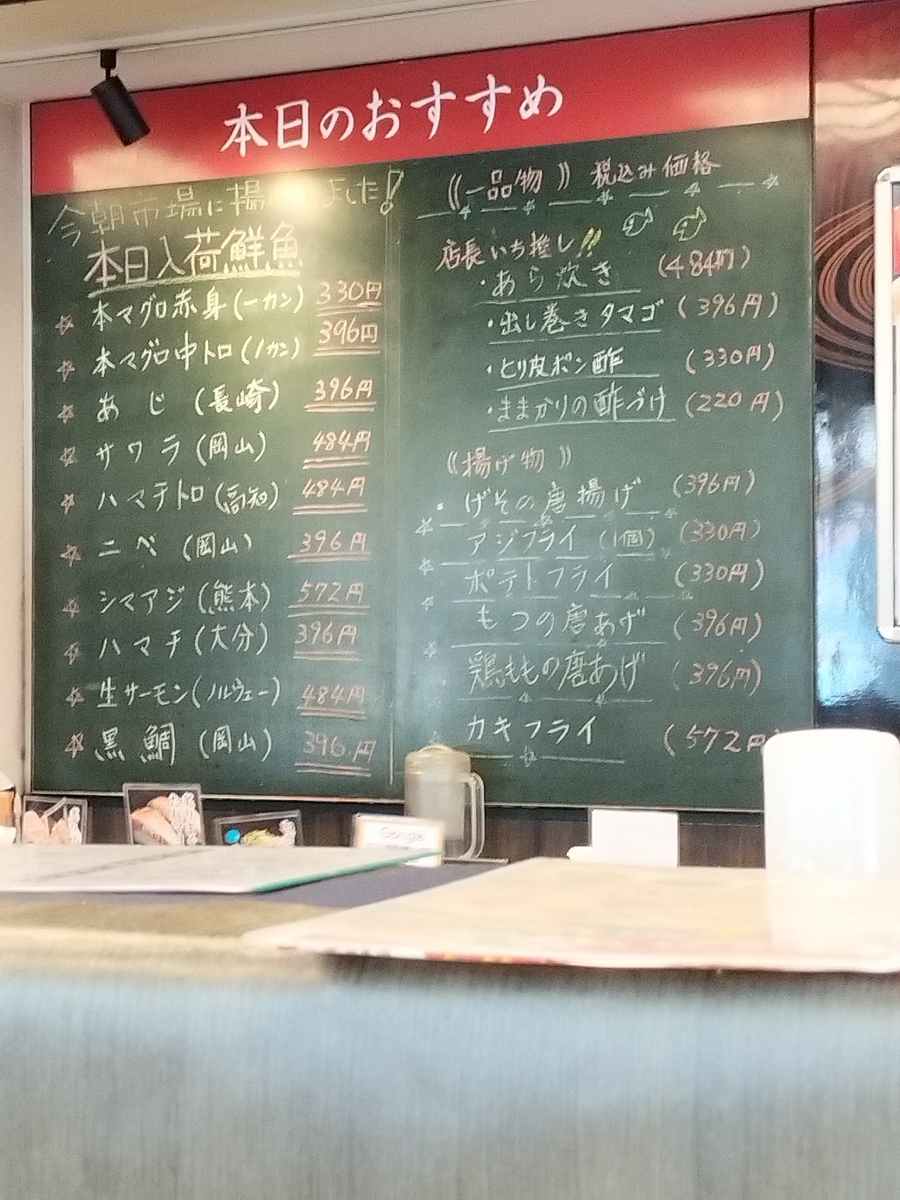 本日のおすすめ
今朝市場に揚 ました!
本日入荷鮮魚
☆ 本マグロ赤身(一カン) 330円
☆ 本マグロ中トロ(1カン) 396円
☆ あじ (長崎) 396円
☆ サワラ(岡山) 484円
☆ ハマチトロ(高知) 484円
☆ ニベ (岡山) 396円
☆ シマアジ(熊本) 572円
☆ ハマチ(大分) 396円
☆ 生サーモン(ノルウェー) 484円
☆ 黒鯛 (岡山) 396円
《一品物》 税込み価格
店長いち推し!!
・あら炊き (484円)
・出し巻きタマゴ (396円)
・とり皮ポン酢 (330円)
・ままかりの酢づけ (220円)
《揚げ物》
げその唐揚げ (396円)
アジフライ (1個) (330円)
ポテトフライ (330円)
もつの唐あげ (396円)
鶏ももの唐あげ (396円)
カキフライ (572円)
Google